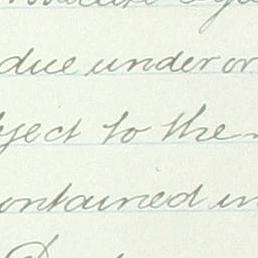 due under or
ject to the
ontained in